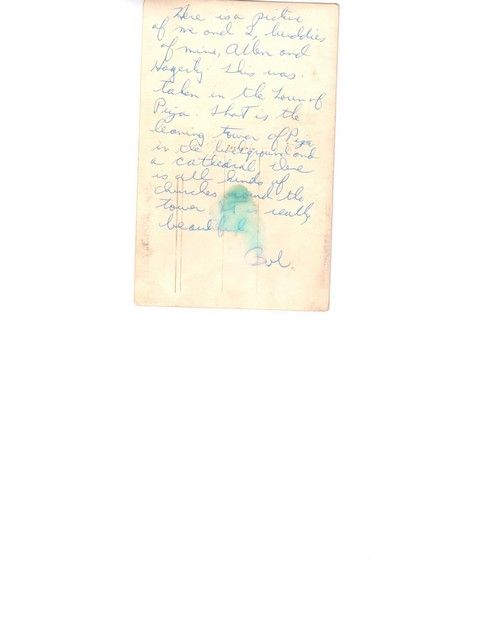 Here is a picture
of me and 2, buddies
of mine, Allen and
Hagerty. This was
taken in the Town of
Piza. That is the
leaning tower of Piza
in the background and
a cathedral there
is all kinds of
churches around the
tower it really
beautiful.
Bob.